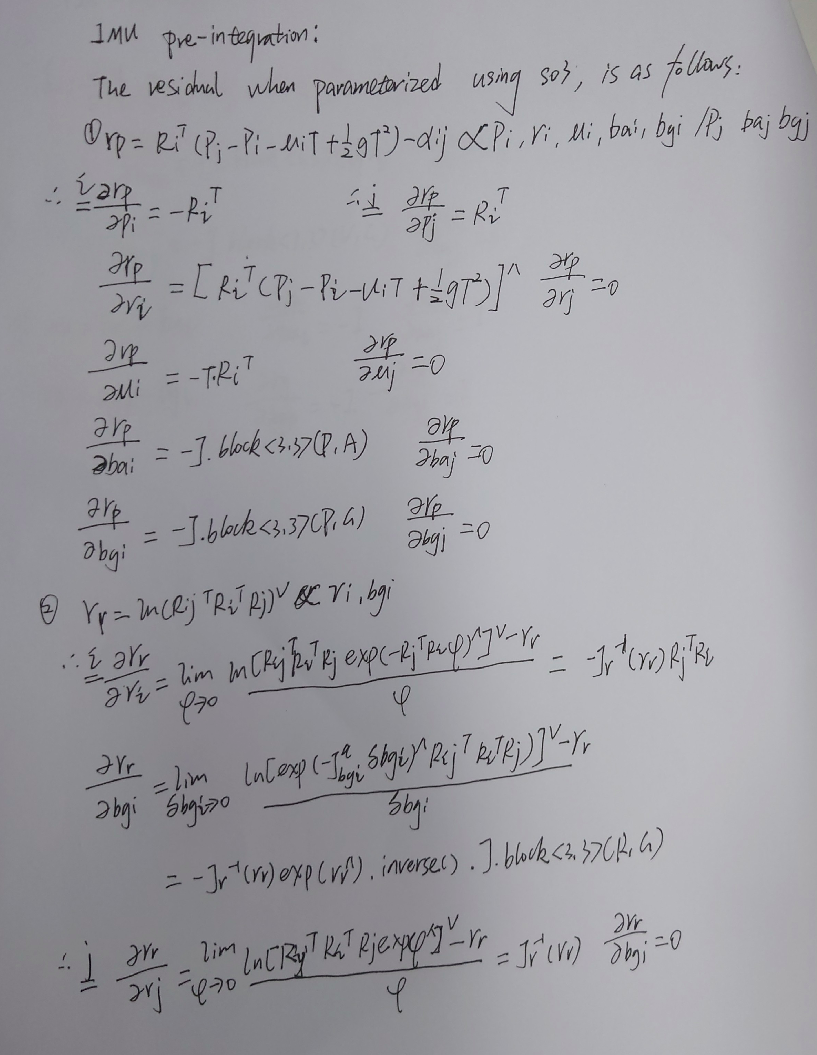 IMU pre-integration:
The residual when parametorized using so3, is as follows:
① rp = Ri^T (Pj - Pi - uiT + ½gT²) - αij ∝ Pi, ri, ui, bai, bgi / Pj baj bgj
∴ i ∂rp/∂pi = -Ri^T ∴ j ∂rp/∂Pj = Ri^T
∂rp/∂ri = [Ri^T (Pj - Pi - uiT + ½gT²)]^∧ ∂rp/∂rj = 0
∂rp/∂ui = -T·Ri^T ∂rp/∂uj = 0
∂rp/∂bai = -J.block<3.3>(P,A) ∂rp/∂baj = 0
∂rp/∂bgi = -J.block<3.3>(P,G) ∂rp/∂bgj = 0
② rr = ln(Rij^T Ri^T Rj)^∨ ∝ ri, bgi
∴ i ∂rr/∂ri = lim φ→0 ln[Rij^T Ri^T Rj exp(-Rj^T Ri φ)^∧]^∨ - rr / φ = -Jr^-1(rr) Rj^T Ri
∂rr/∂bgi = lim δbgi→0 ln[exp(-J^q bgi δbgi)^∧ Rij^T Ri^T Rj)]^∨ - rr / δbgi
= -Jr^-1(rr) exp(rr^∧).inverse().J.block<3.3>(R,G)
∴ j ∂rr/∂rj = lim φ→0 ln[Rij^T Ri^T Rj expφ^∧]^∨ - rr / φ = Jr^-1(rr) ∂rr/∂bgj = 0